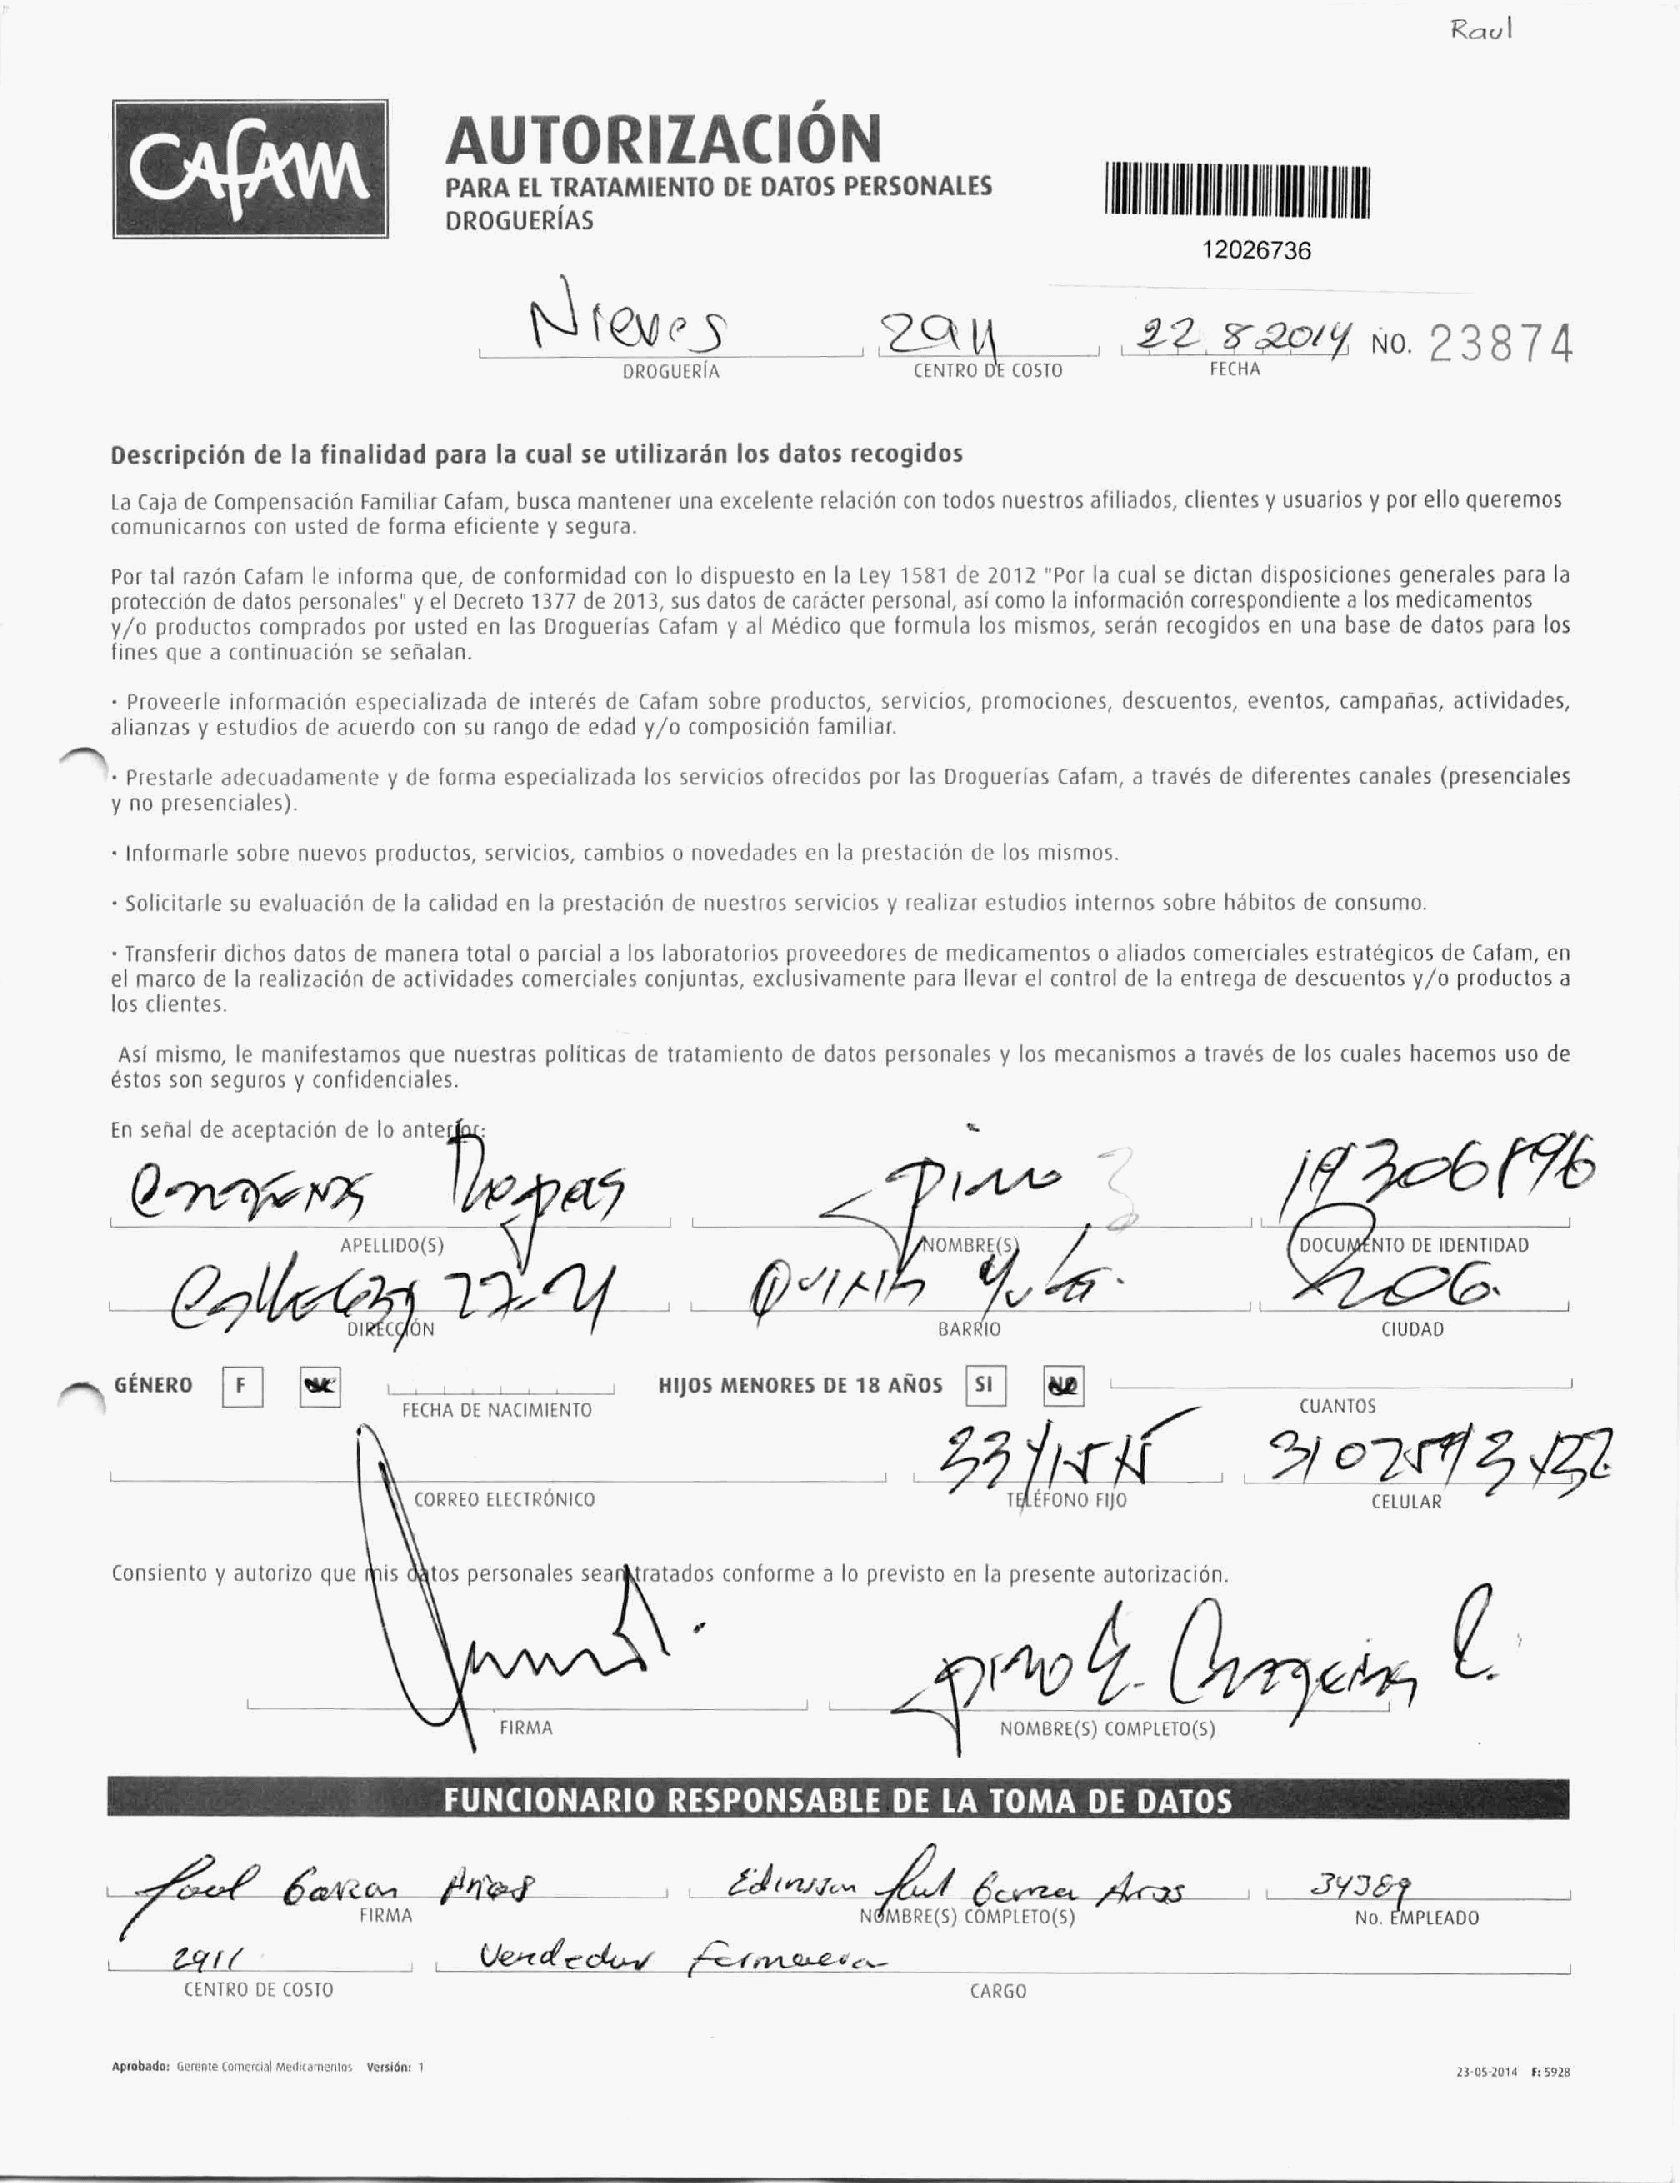 Raul
CAFAM
AUTORIZACIÓN
PARA EL TRATAMIENTO DE DATOS PERSONALES
DROGUERÍAS
12026736
Nieves 2911 22 8 2014 NO. 23874
DROGUERÍA CENTRO DE COSTO FECHA
Descripción de la finalidad para la cual se utilizarán los datos recogidos
La Caja de Compensación Familiar Cafam, busca mantener una excelente relación con todos nuestros afiliados, clientes y usuarios y por ello queremos
comunicarnos con usted de forma eficiente y segura.
Por tal razón Cafam le informa que, de conformidad con lo dispuesto en la Ley 1581 de 2012 "Por la cual se dictan disposiciones generales para la
protección de datos personales" y el Decreto 1377 de 2013, sus datos de carácter personal, así como la información correspondiente a los medicamentos
y/o productos comprados por usted en las Droguerías Cafam y al Médico que formula los mismos, serán recogidos en una base de datos para los
fines que a continuación se señalan.
· Proveerle información especializada de interés de Cafam sobre productos, servicios, promociones, descuentos, eventos, campañas, actividades,
alianzas y estudios de acuerdo con su rango de edad y/o composición familiar.
· Prestarle adecuadamente y de forma especializada los servicios ofrecidos por las Droguerías Cafam, a través de diferentes canales (presenciales
y no presenciales).
· Informarle sobre nuevos productos, servicios, cambios o novedades en la prestación de los mismos.
· Solicitarle su evaluación de la calidad en la prestación de nuestros servicios y realizar estudios internos sobre hábitos de consumo.
· Transferir dichos datos de manera total o parcial a los laboratorios proveedores de medicamentos o aliados comerciales estratégicos de Cafam, en
el marco de la realización de actividades comerciales conjuntas, exclusivamente para llevar el control de la entrega de descuentos y/o productos a
los clientes.
Así mismo, le manifestamos que nuestras políticas de tratamiento de datos personales y los mecanismos a través de los cuales hacemos uso de
éstos son seguros y confidenciales.
En señal de aceptación de lo anterior:
19306896
APELLIDO(S) NOMBRE(S) DOCUMENTO DE IDENTIDAD
DIRECCIÓN BARRIO CIUDAD
GÉNERO F HIJOS MENORES DE 18 AÑOS SI NO
FECHA DE NACIMIENTO CUANTOS
CORREO ELECTRÓNICO TELÉFONO FIJO CELULAR
Consiento y autorizo que mis datos personales sean tratados conforme a lo previsto en la presente autorización.
FIRMA NOMBRE(S) COMPLETO(S)
FUNCIONARIO RESPONSABLE DE LA TOMA DE DATOS
Raul Garzon Arias Edinsson Raul Garzon Arias 34389
FIRMA NOMBRE(S) COMPLETO(S) No. EMPLEADO
2911 Vendedor
CENTRO DE COSTO CARGO
Aprobado: Gerente Comercial Medicamentos Versión: 1
23-05-2014 F: 5928